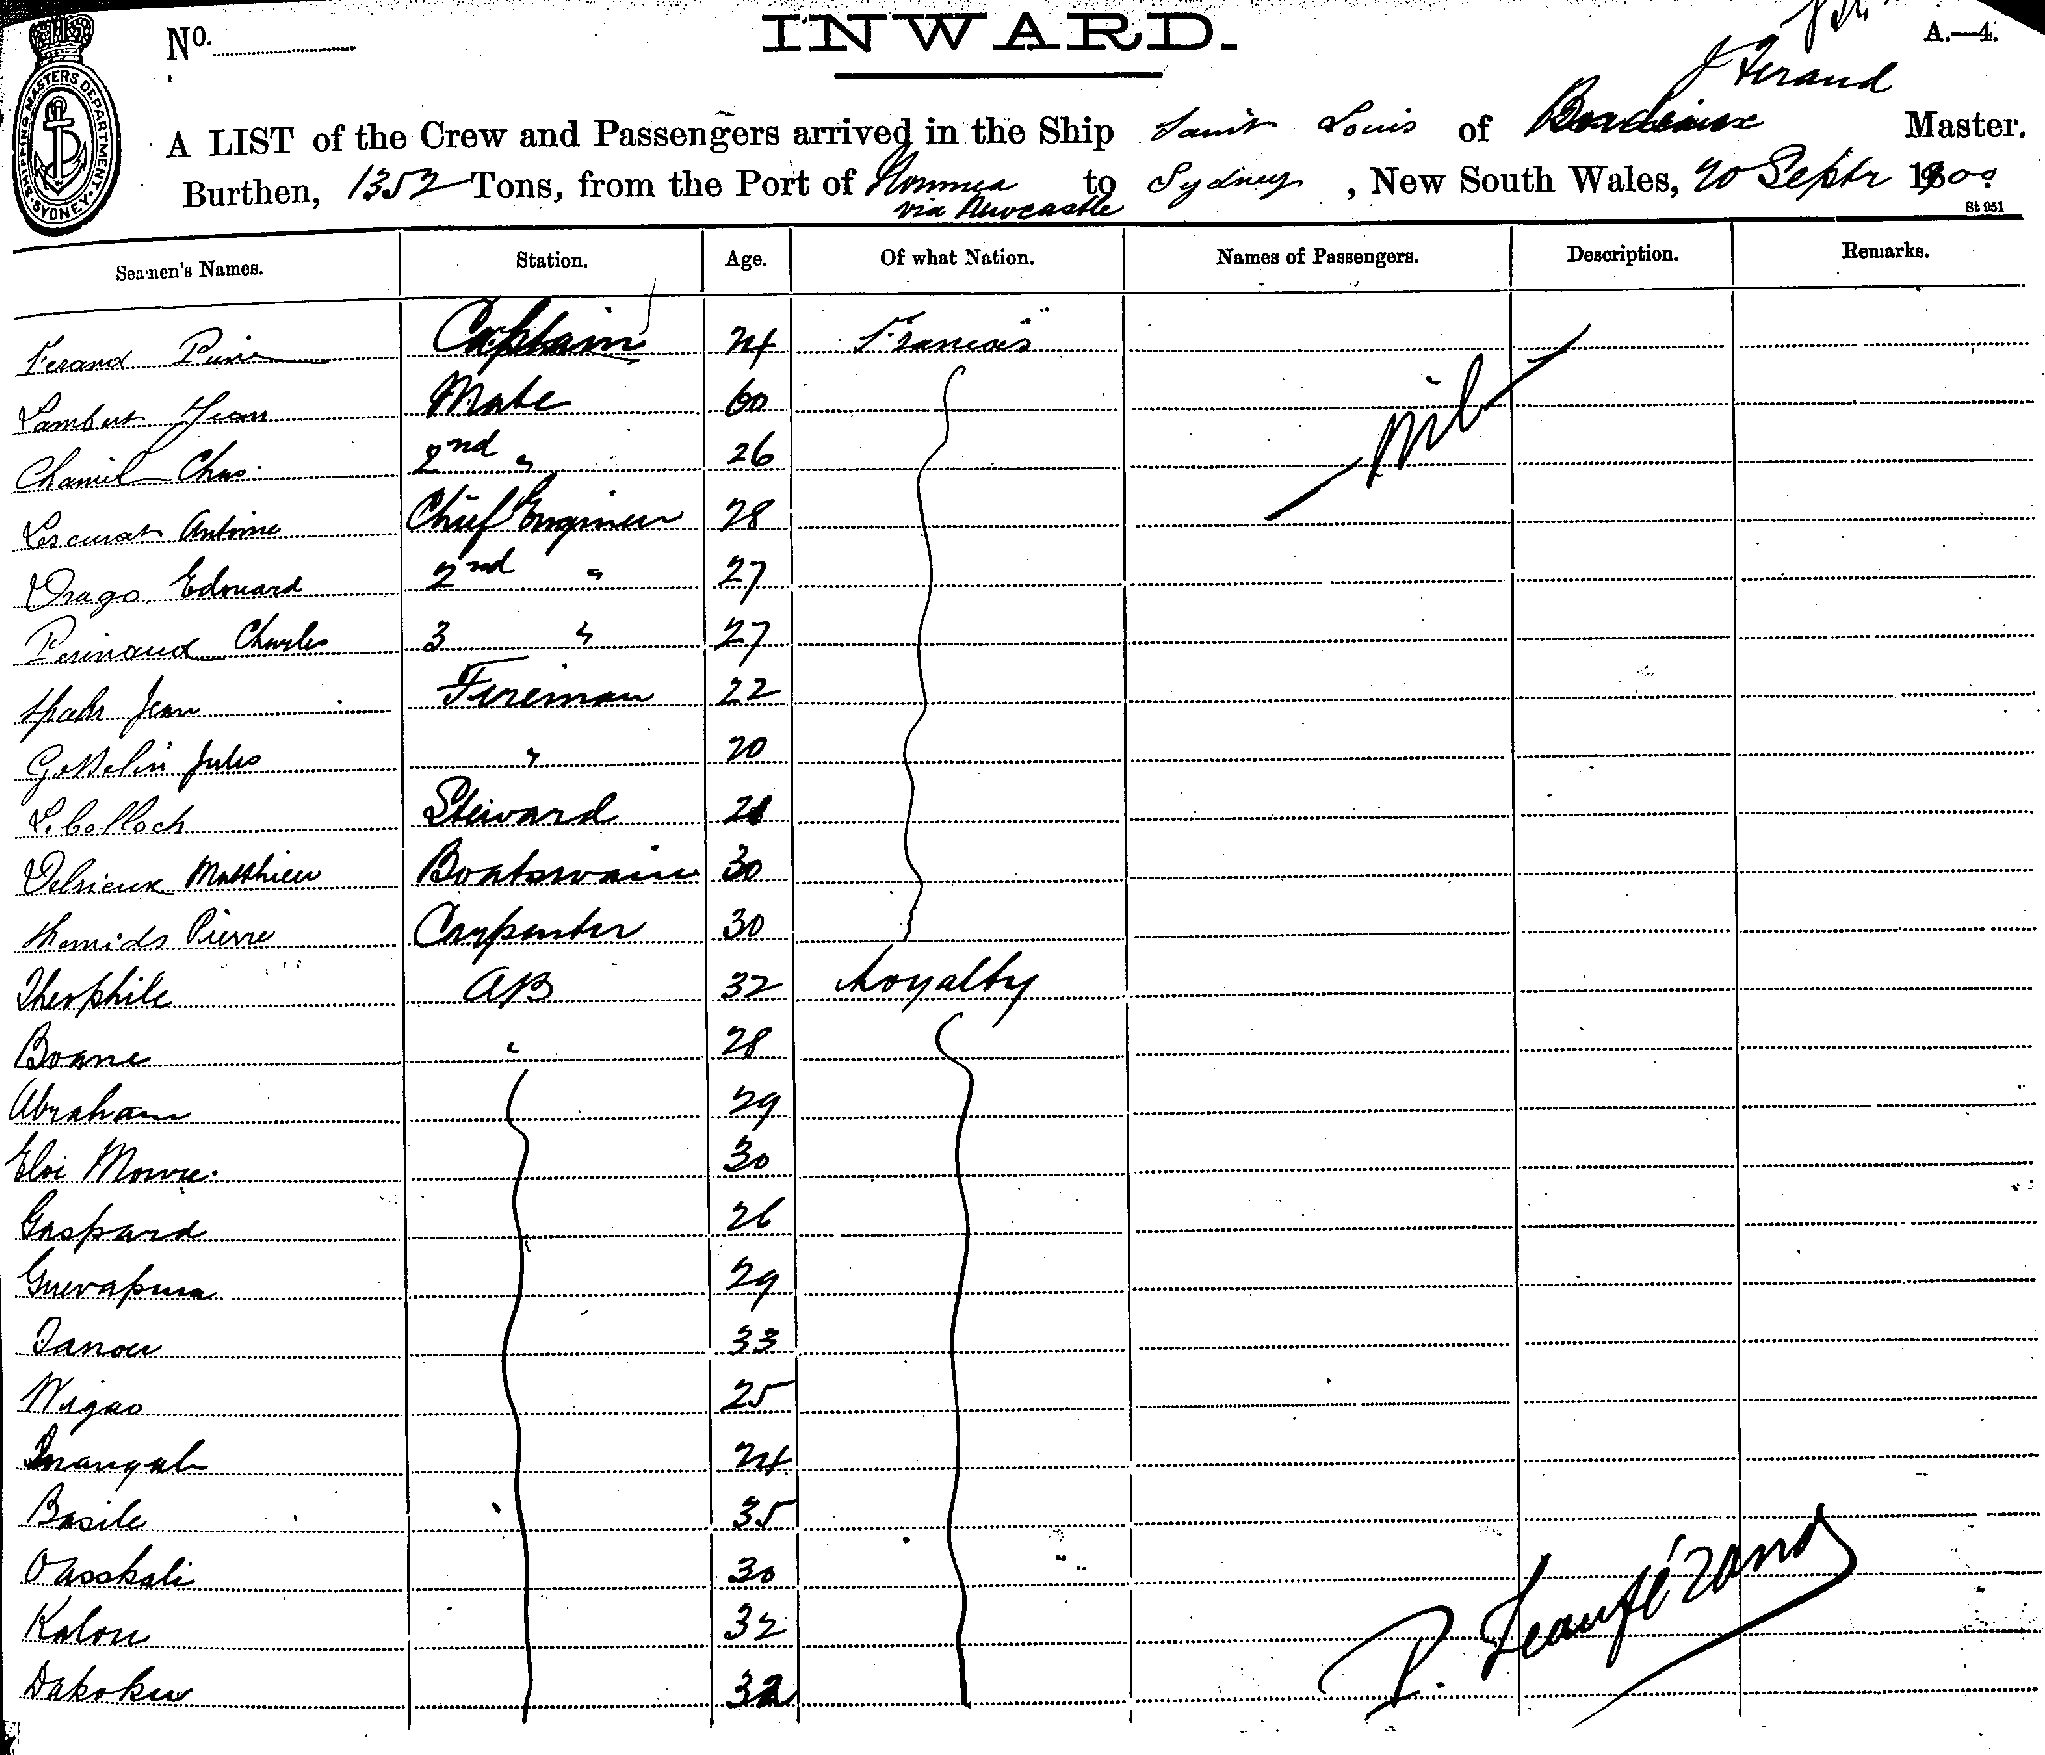 INWARD.
No.
A.—4.
J Ferand
A LIST of the Crew and Passengers arrived in the Ship Saint Louis of Bordeaux Master.
Burthen, 1352 Tons, from the Port of Noumea to Sydney, New South Wales, 20 Septr 1900
via Newcastle
St 951
SHIPPING MASTERS DEPARTMENT. SYDNEY.
Seamen's Names. Station. Age. Of what Nation. Names of Passengers. Description. Remarks.
Ferand Captain 24 Francais
nil
Lambert Jean Mate 60
Chamil Chas. 2nd " 26
Lescurat Antoine Chief Engineer 28
Drago Edouard 2nd " 27
Perinaud Charles 3 " 27
Spahr Jean Fireman 22
Gosselin Jules " 20
Steward
Delrieux Matthieu Boatswain 30
Pierre Carpenter 30
Theophile AB 32 Loyalty
Boane " 28
Abraham 29
Eloi 30
Gaspard 26
29
Tanou 33
Wigao 25
24
Basile 35
Oasskali 30
Kalou 32
Dakoku 32
P.